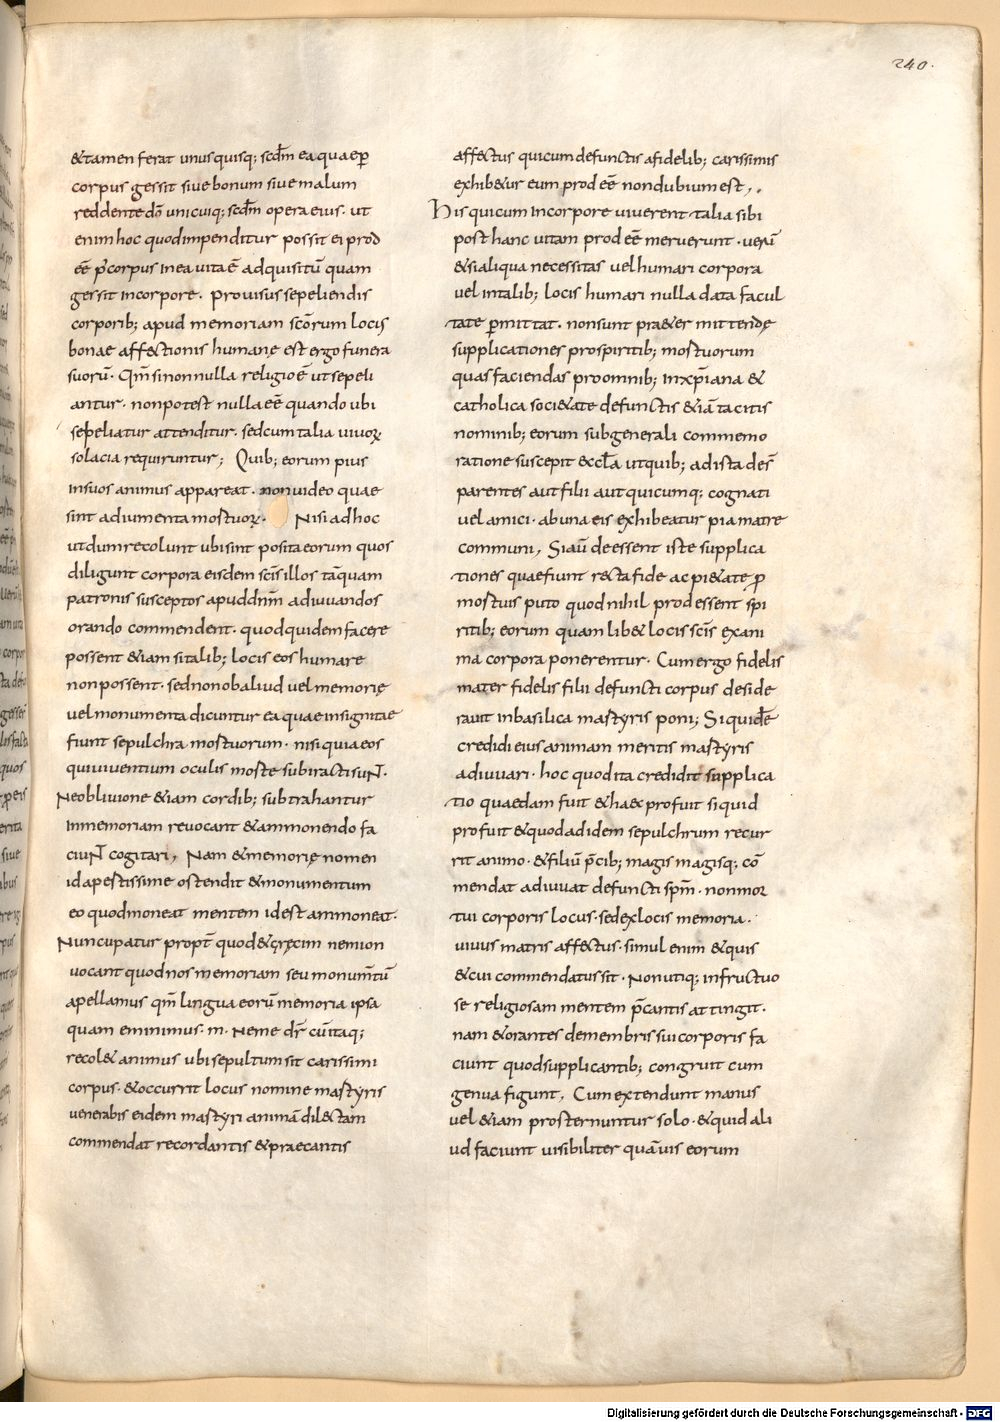 240.
&tamen ferat unusquisq; scdm̄ ea quae ꝑ
corpus gessit siue bonum siue malum
reddente dō unicuiq; scdm̄ opera eius. ut
enim hoc quod impenditur possit ei prod
eē p̄ corpus in ea uita ē adquisitū quam
gessit incorpore. Prouisus sepeliendis
corporib; apud memoriam scōrum locis
bonae affectionis humanę est ergo funera
suorū. Qm̄ si nonnulla religio ē ut sepeli
antur. non potest nulla eē quando ubi
sepeliatur attenditur. sed cum talia uiuoꝝ
solacia requiruntur; Quib; eorum pius
insuos animus appareat. non uideo quae
sint adiumenta mortuoꝝ. Nisi adhoc
ut dum recolunt ubi sint posita eorum quos
diligunt corpora eisdem scīs illos tāquam
patronis susceptos apud dnm̄ adiuuandos
orando commendent. quod quidem facere
possent &iam si talib; locis eos humare
non possent. sed non ob aliud uel memorię
uel monumenta dicuntur ea quae insignitae
fiunt sepulchra mortuorum. nisi quia eos
qui uiuentium oculis morte subtracti suNT.
Ne obliuione &iam cordib; subtrahantur
inmemoriam reuocant & ammonendo fa
ciuNT cogitari, Nam & memorię nomen
id apestissime ostendit & monumentum
eo quod moneat mentem id est ammoneat.
Nuncupatur propt̄ quod & gręcim nemion
uocant quod nos memoriam seu monum̄tū
apellamus qm̄ lingua eorū memoria ipsa
quam eminimus. m. Neme dr̄ cū itaq;
recol& animus ubi sepultum sit carissimi
corpus. & occurrit locus nomine martyris
uenerabis eidem martyri animā dilectam
commendat recordantis & praecantis
affectus qui cum defunctis afidelib; carissimis
exhib&ur eum prodeē non dubium est,.
His qui cum incorpore uiuerent talia sibi
post hanc uitam prodeē meruerunt. uerū
& si aliqua necessitas uel humari corpora
uel intalib; locis humari nulla data facul
tate ꝑmittat. non sunt pra&er mittendę
supplicationes pro spiritib; mortuorum
quas faciendas pro omnib; in xp̄iana &
catholica soci&ate defunctis &iā tacitis
nominib; eorum sub generali commemo
ratione suscepit eccla̅ ut quib; ad ista des̄
parentes aut filii aut quicumq; cognati
uel amici. ab una eis exhibeatur pia matre
communi, Si aū deessent iste supplica
tiones quae fiunt recta fide ac pi&ate ꝓ
mortuis puto quod nihil prodessent spi
ritib; eorum quam lib& locis scīs exani
ma corpora ponerentur. Cum ergo fidelis
mater fidelis filii defuncti corpus deside
rauit inbasilica martyris poni; Siquidē
credidi eius animam meritis martyris
adiuuari. hoc quod ita credidit supplica
tio quaedam fuit & haec profuit siquid
profuit & quod adidem sepulchrum recur
rit animo. & filiū p̄cib; magis magisq; cō
mendat adiuuat defuncti spm̄. non moꝝ
tui corporis locus. sed ex locis memoria.
uiuus matris affectus. simul enim & quis
& cui commendatus sit. Non utiq; infructuo
se religiosam mentem p̄cantis attingit.
nam & orantes de membris sui corporis fa
ciunt quod supplicantib; congruit cum
genua figunt, Cum extendunt manus
uel &iam prosternuntur solo. & quid ali
ud faciunt uisibiliter quāuis eorum
Digitalisierung gefördert durch die Deutsche Forschungsgemeinschaft - DFG